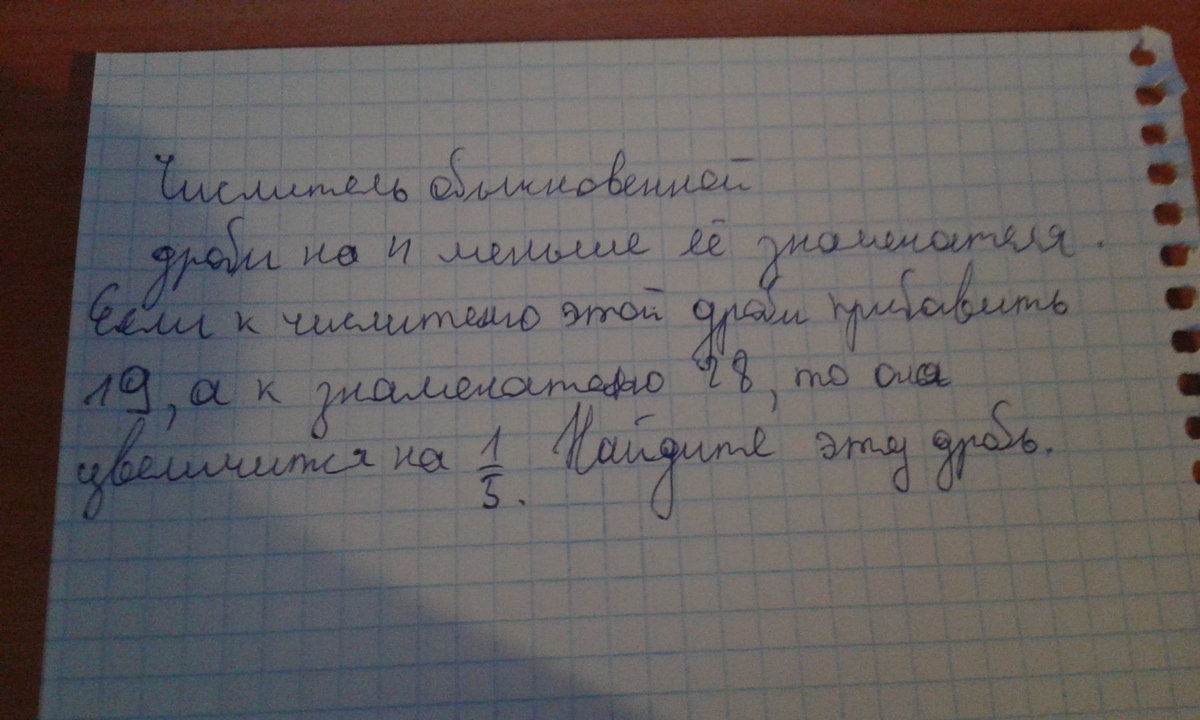 Числитель обыкновенной
дроби на 4 меньше её знаменателя.
Если к числителю этой дроби прибавить
19, а к знаменателю 28, то она
увеличится на 1/5. Найдите эту дробь.